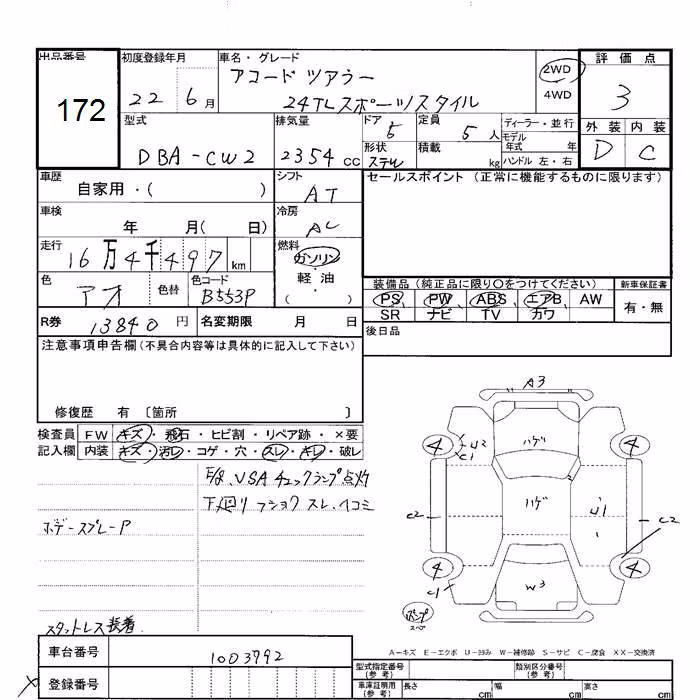 出品番号 172
初度登録年月 22 6月
車名・グレード アコードツアラー
24TLスポーツスタイル
2WD
4WD
評価点 3
外装 内装
D C
型式 DBA-CW2
排気量 2354 cc
ドア 5
形状 ステW
定員 5人
積載 kg
ディーラー・並行
モデル年式 年
ハンドル 左・右
車歴 自家用・( )
シフト AT
セールスポイント (正常に機能するものに限ります)
車検 年 月( 日)
冷房 AC
走行 16万4千497km
燃料 ガソリン・軽油・( )
色 アオ
色替
色コード B553P
装備品 (純正品に限り〇をつけてください)
PS PW ABS エアB AW
SR ナビ TV カワ
新車保証書
有・無
R券 13840円
名変期限 月 日
後日品
注意事項申告欄(不具合内容等は具体的に記入して下さい)
修復歴 有 〔箇所 〕
検査員記入欄
FW キズ・飛石・ヒビ割・リペア跡・×要
内装 キズ・汚レ・コゲ・穴・スレ・キレ・破レ
VSAチェックランプ点灯
下廻リ フショク スレ、ヘコミ
ボデースプレーP
スタットレス装着
A3
ハゲ
ハゲ
W3
4
U2
C1
4
C2
U1
C2
4
C1
4
A-キズ E-エクボ U-凹み W-補修跡 S-サビ C-腐食 XX-交換済
車台番号 1003792
登録番号
型式指定番号(参考)
類別区分番号(参考)
車庫証明用(参考) 長さ cm 幅 cm 高さ cm